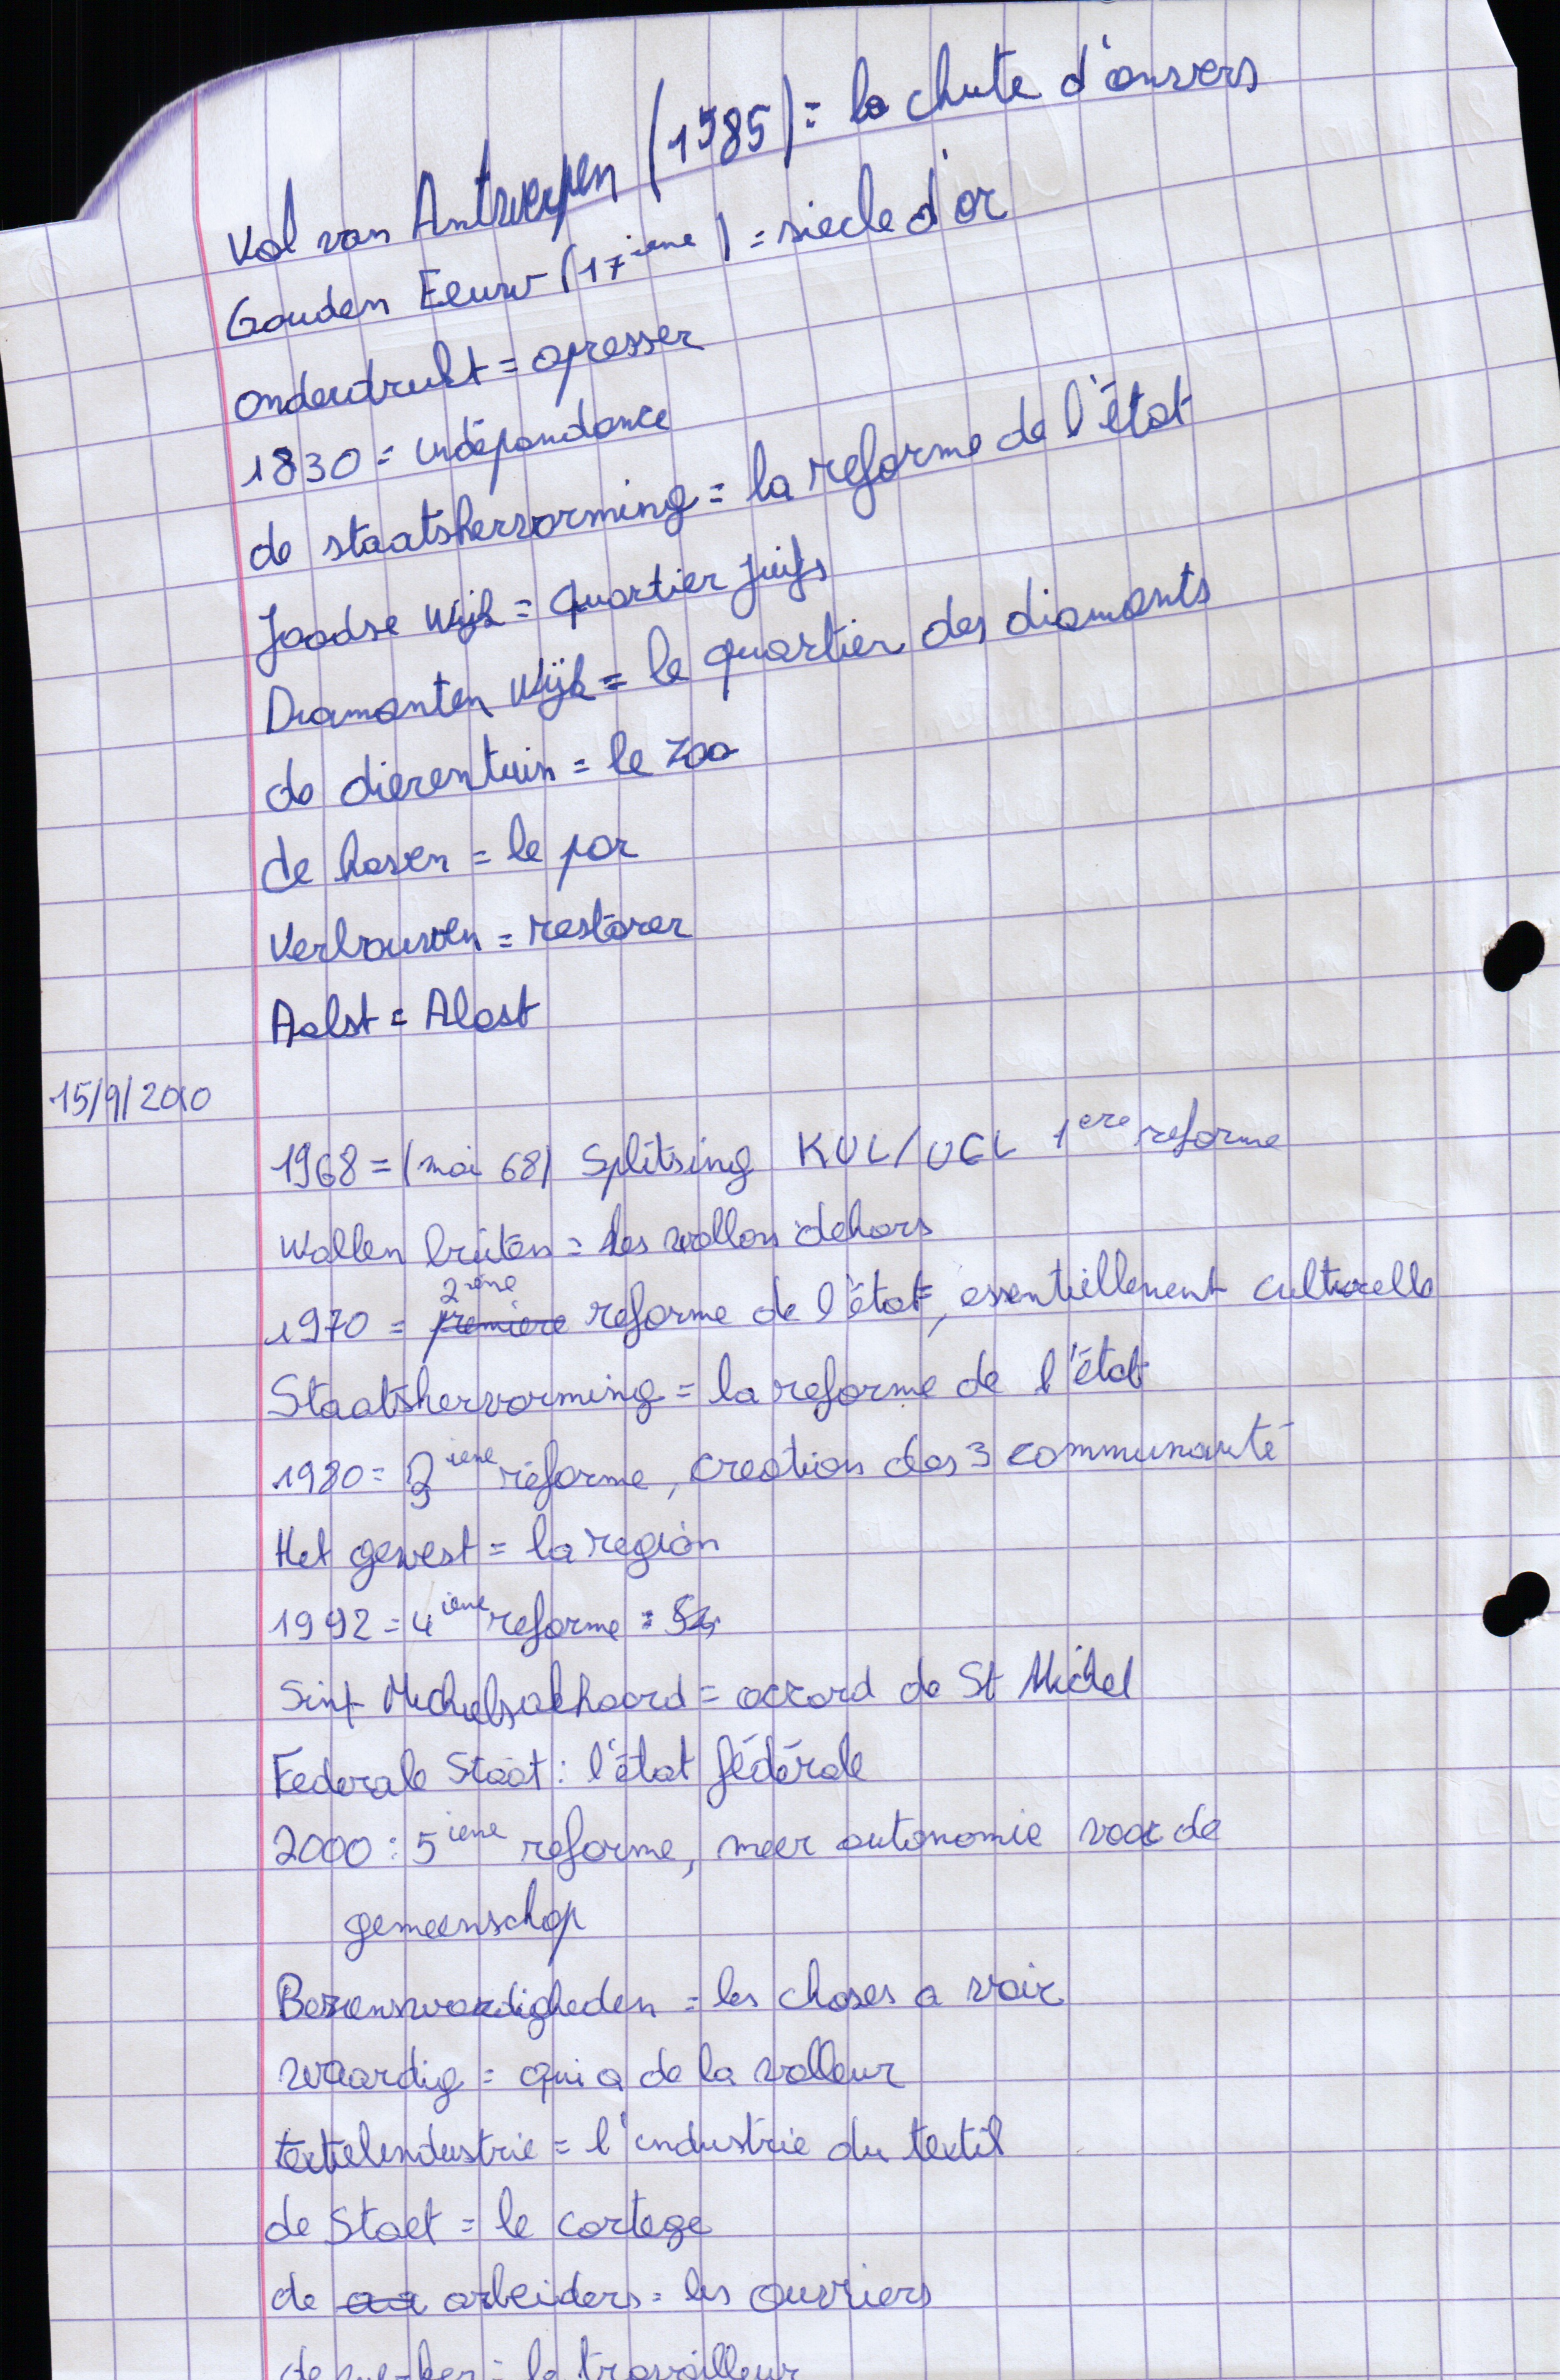 Val van Antwerpen (1585) = la chute d'anvers
Gouden Eeuw (17ieme) = siecle d'or
onderdrukt = opresser
1830 = indépendance
de staatshervorming = la reforme de l'état
Joodse Wijk = quartier juifs
Diamanten Wijk = le quartier des diamants
de dierentuin = le zoo
de haven = le por
Verbouwen = restorer
Aalst = Alost
15/9/2010
1968 = (mai 68) Splitsing KUL/UCL 1ere reforme
Wallen brüten = les wallons dehors
2ieme
1970 = premiere reforme de l'état, essentiellement culturelle
Staatshervorming = la reforme de l'état
1980 = 3ieme réforme, creation des 3 communauté
Het gewest = la region
1992 = 4ieme reforme =
Sint Michielsakkoord = accord de St Michel
Federale Staat : l'état fédérale
2000 : 5ieme reforme, meer autonomie voor de
gemeenschap
Bezienswaardigheden = les choses a voir
waardig = qui a de la valleur
textielindustrie = l'industrie du textil
de Stoet = le cortege
de arbeiders = les ouvriers
de werker = le travailleur